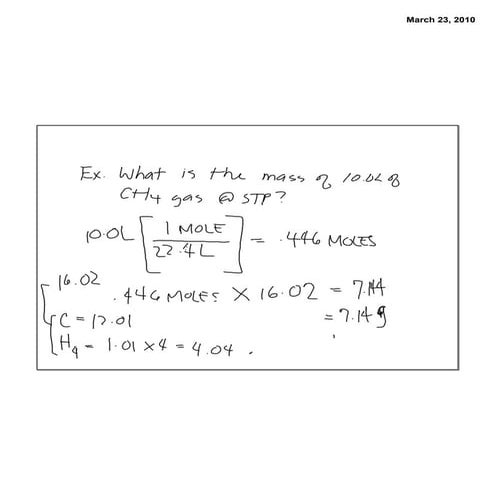 March 23, 2010
Ex. What is the mass of 10.0L of
CH4 gas @ STP?
10.0L [1 MOLE / 22.4L] = .446 MOLES
16.02
.446 MOLES X 16.02 = 7.144
C = 12.01
= 7.14g
H4 = 1.01 x 4 = 4.04 .